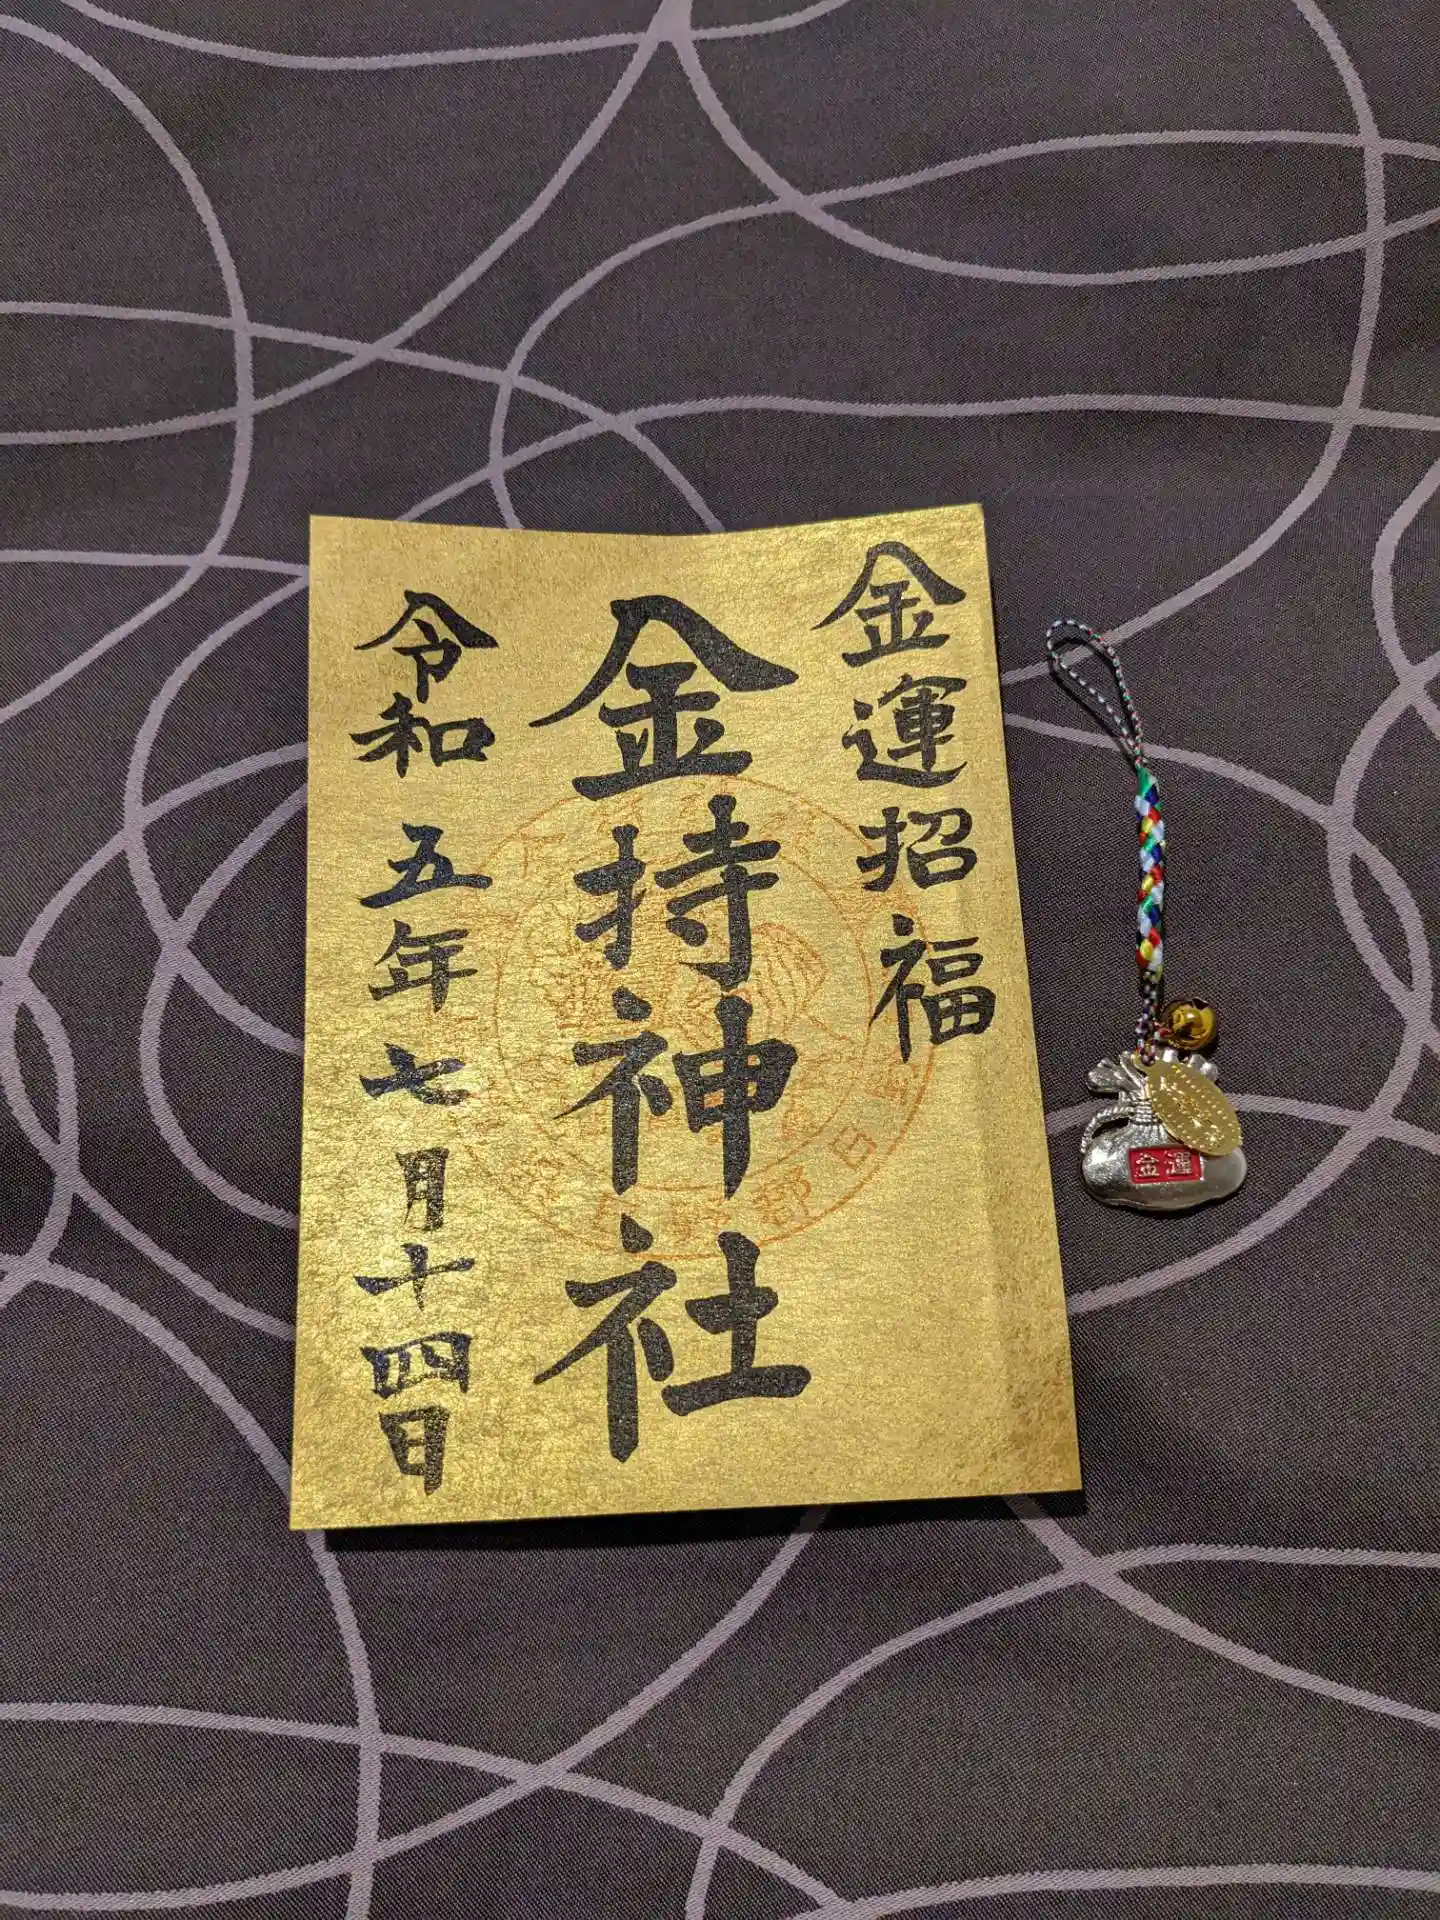 金運招福
金持神社
令和五年七月十四日
金運